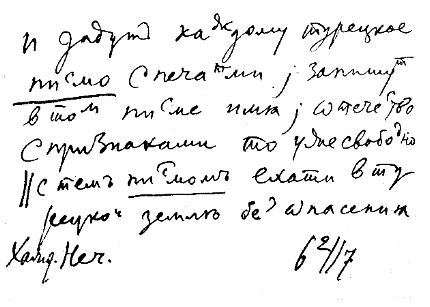 и дадутъ каждому турецкое
писмо с печатми ј запишут
в том писме имя ј ѡтечество
с признаками то уже свободно
|| с темъ писмомъ ехати в ту
рецкой землю без ѡпасения
Хожд. Неч. 62||7